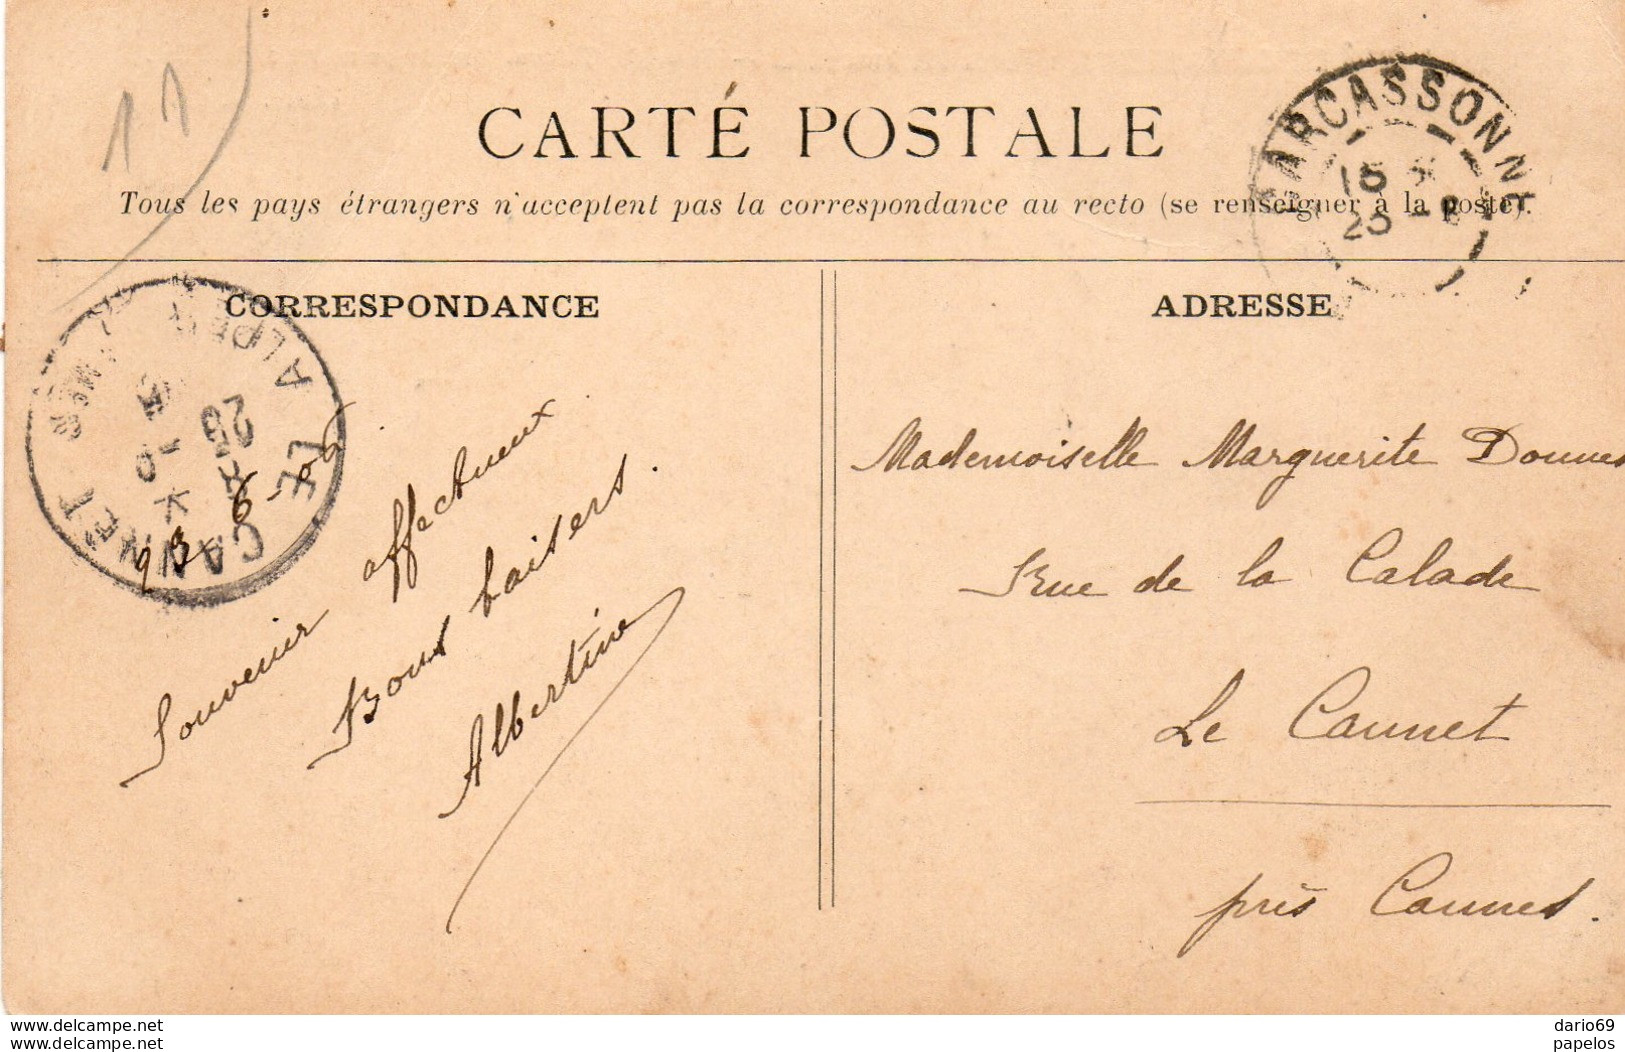 11
CARTE POSTALE
Tous les pays étrangers n'acceptent pas la correspondance au recto (se renseigner à la poste).
CARCASSONNE
15
25
CORRESPONDANCE
ADRESSE
LE CANNET
ALPES
25
23 6-06
Souvenir affectueux
Bons baisers.
Albertine
Mademoiselle Marguerite
Rue de la Calade
Le Cannet
près Cannes.
www.delcampe.net
www.delcampe.net
dario69
papelos